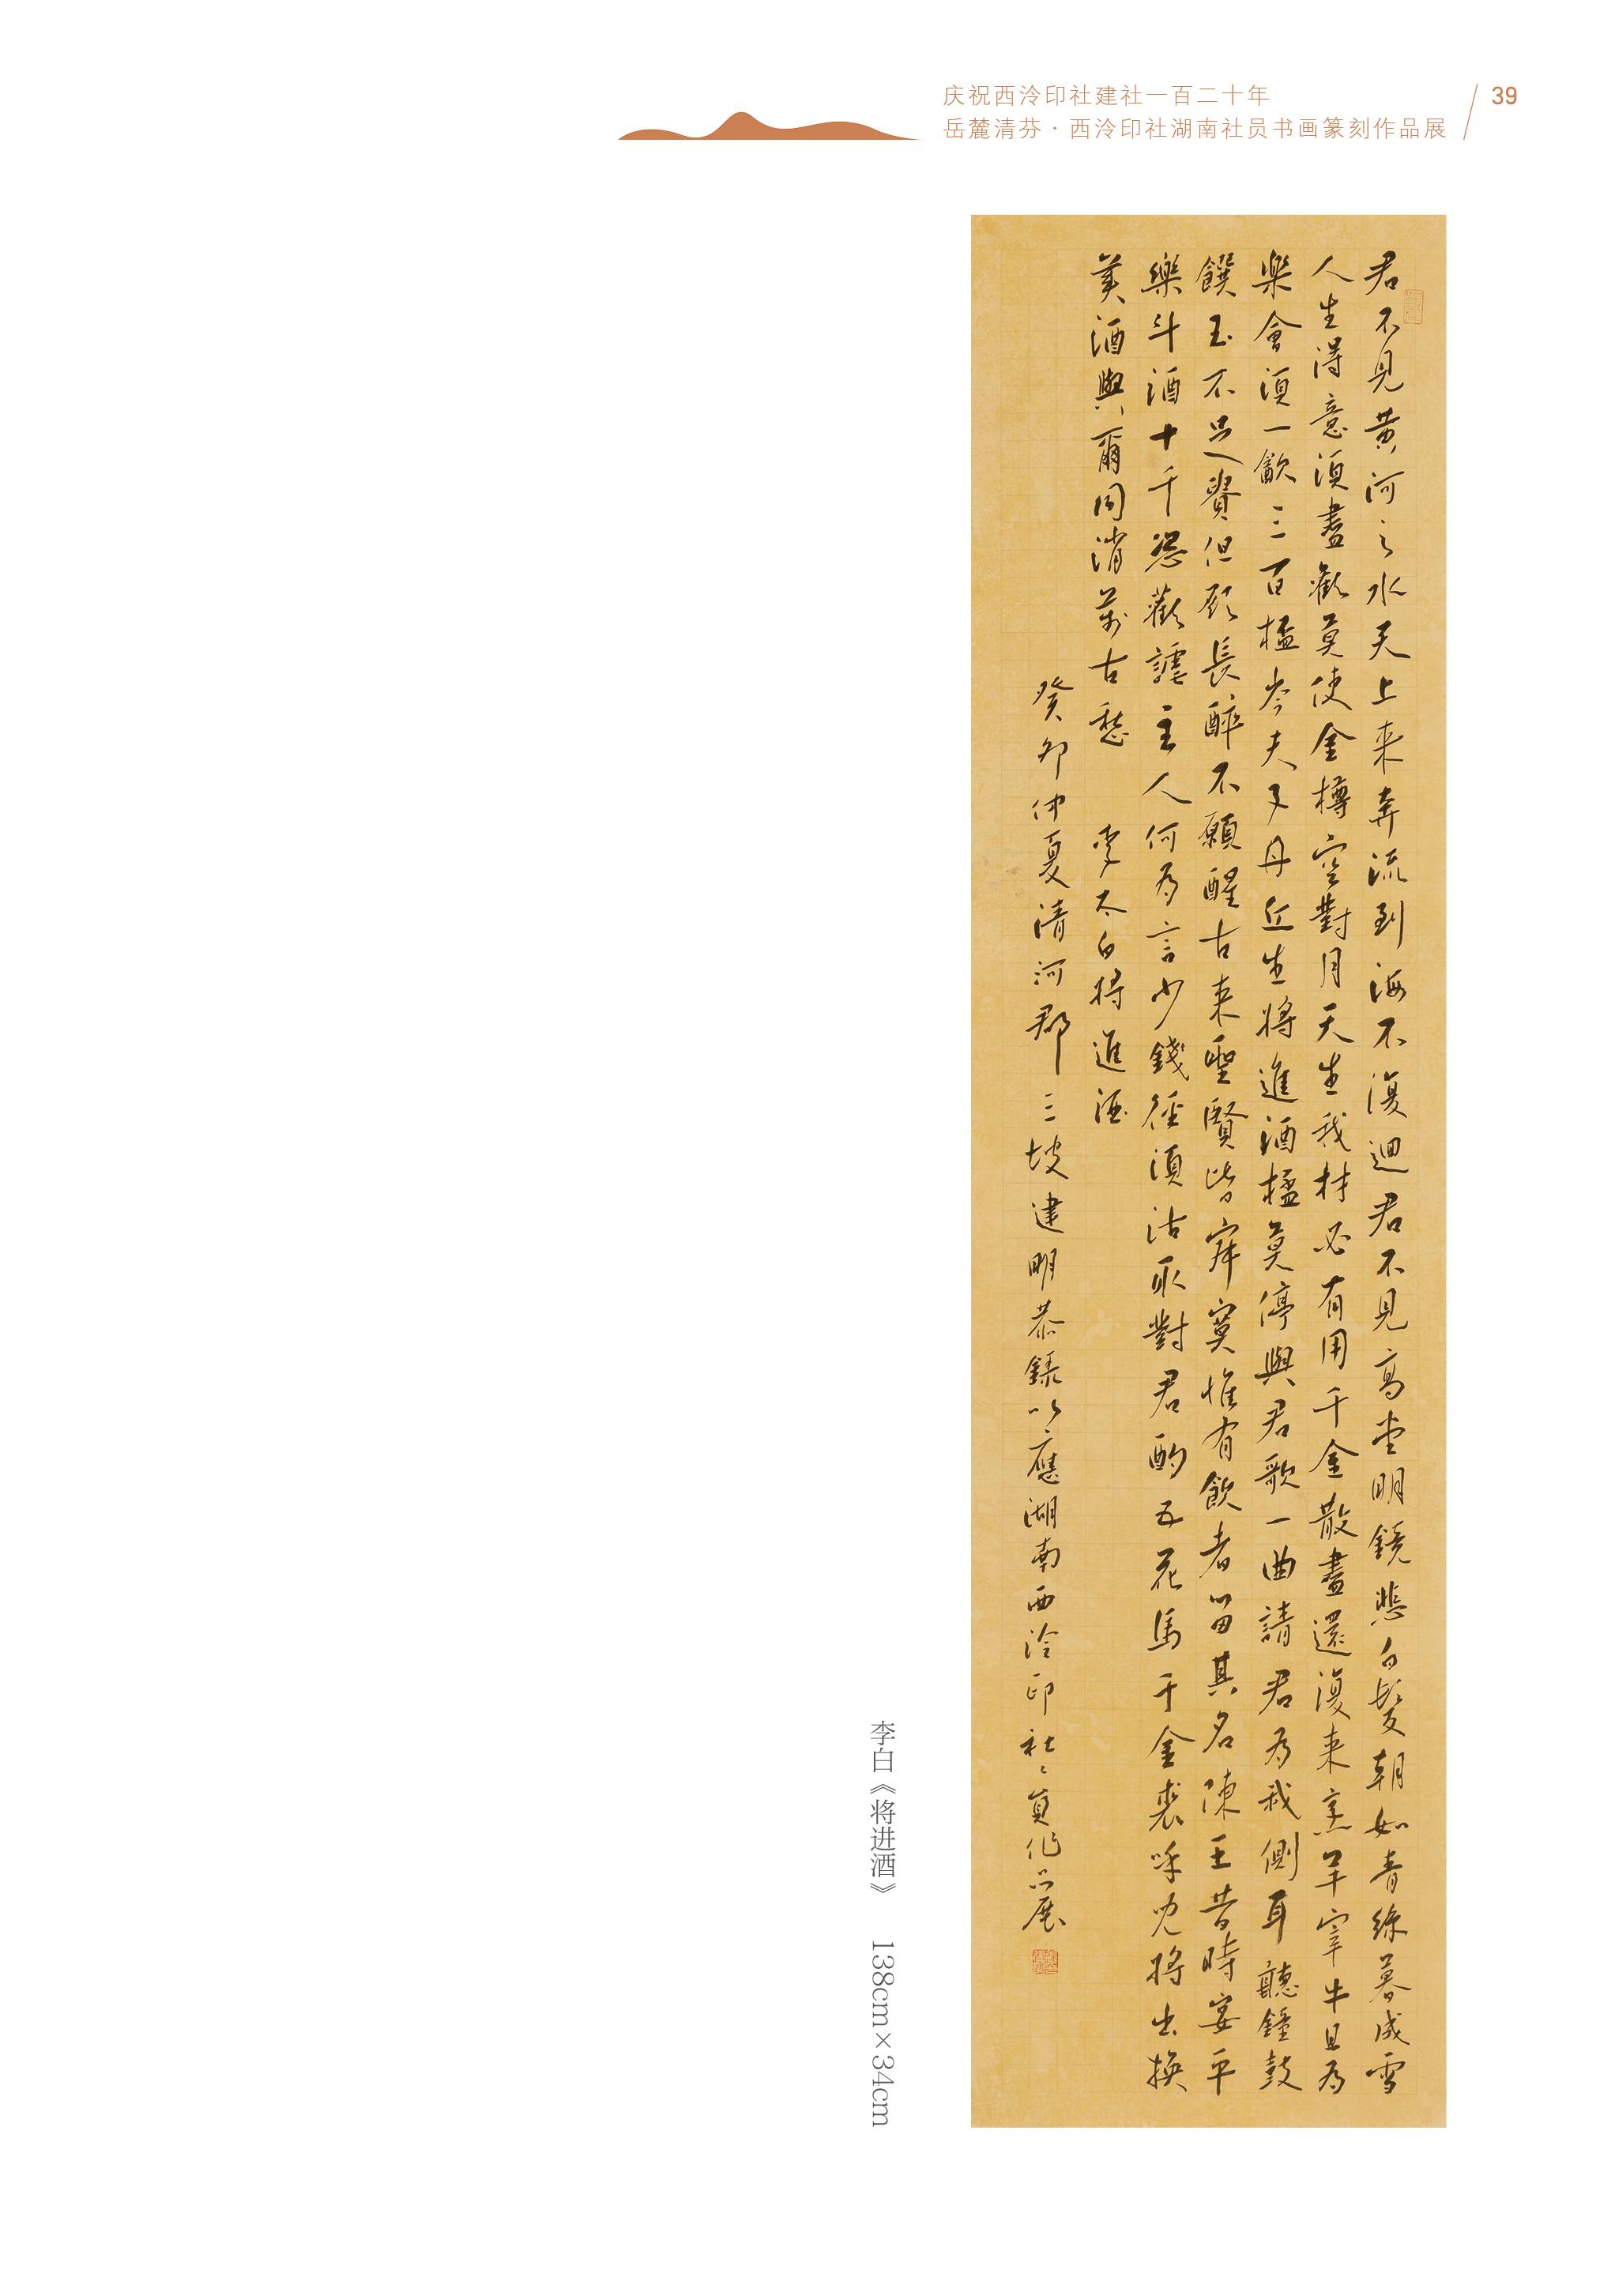 庆祝西泠印社建社一百二十年
岳麓清芬·西泠印社湖南社员书画篆刻作品展
39
君不見黄河之水天上来奔流到海不復迴君不見高堂明鏡悲白髮朝如青絲暮成雪
人生得意須盡歡莫使金樽空對月天生我材必有用千金散盡還復来烹羊宰牛且為
樂會須一飲三百杯岑夫子丹丘生將進酒杯莫停與君歌一曲請君為我側耳聽鐘鼓
饌玉不足貴但願長醉不願醒古来聖賢皆寂寞惟有飲者留其名陳王昔時宴平
樂斗酒十千恣歡謔主人何為言少錢徑須沽取對君酌五花馬千金裘呼兒將出換
美酒與爾同消萬古愁 李太白將進酒
癸卯仲夏清河郡三坡建明恭錄以應湖南西泠印社々員作品展
李白《将进酒》 138cm×34cm